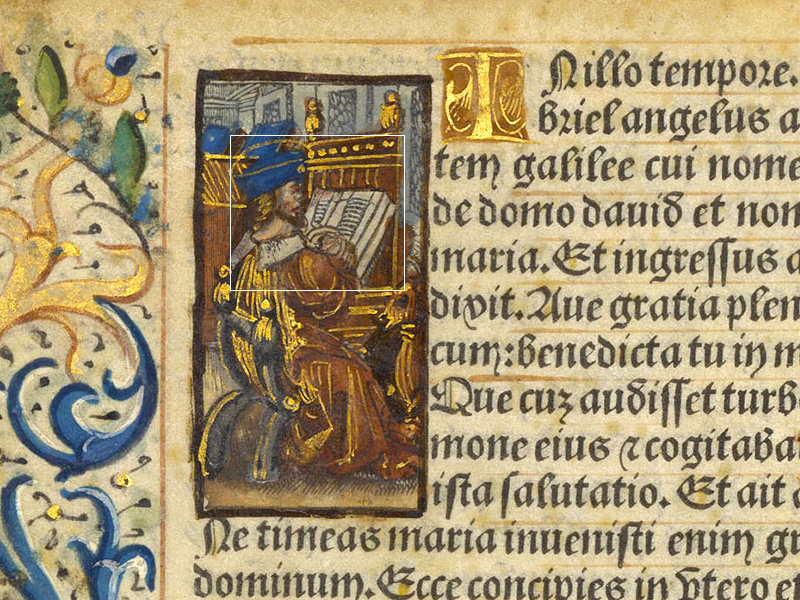 TNillo tempore.
briel angelus a
tem galilee cui nome
de domo dauid et nom
maria. Et ingressus a
dixit. Aue gratia plen
cum: benedicta tu in m
Que cuz audisset turb
mone eius ⁊ cogitabat
ista salutatio. Et ait a
Ne timeas maria inuenisti enim gr
dominum. Ecce concipies in vtero et